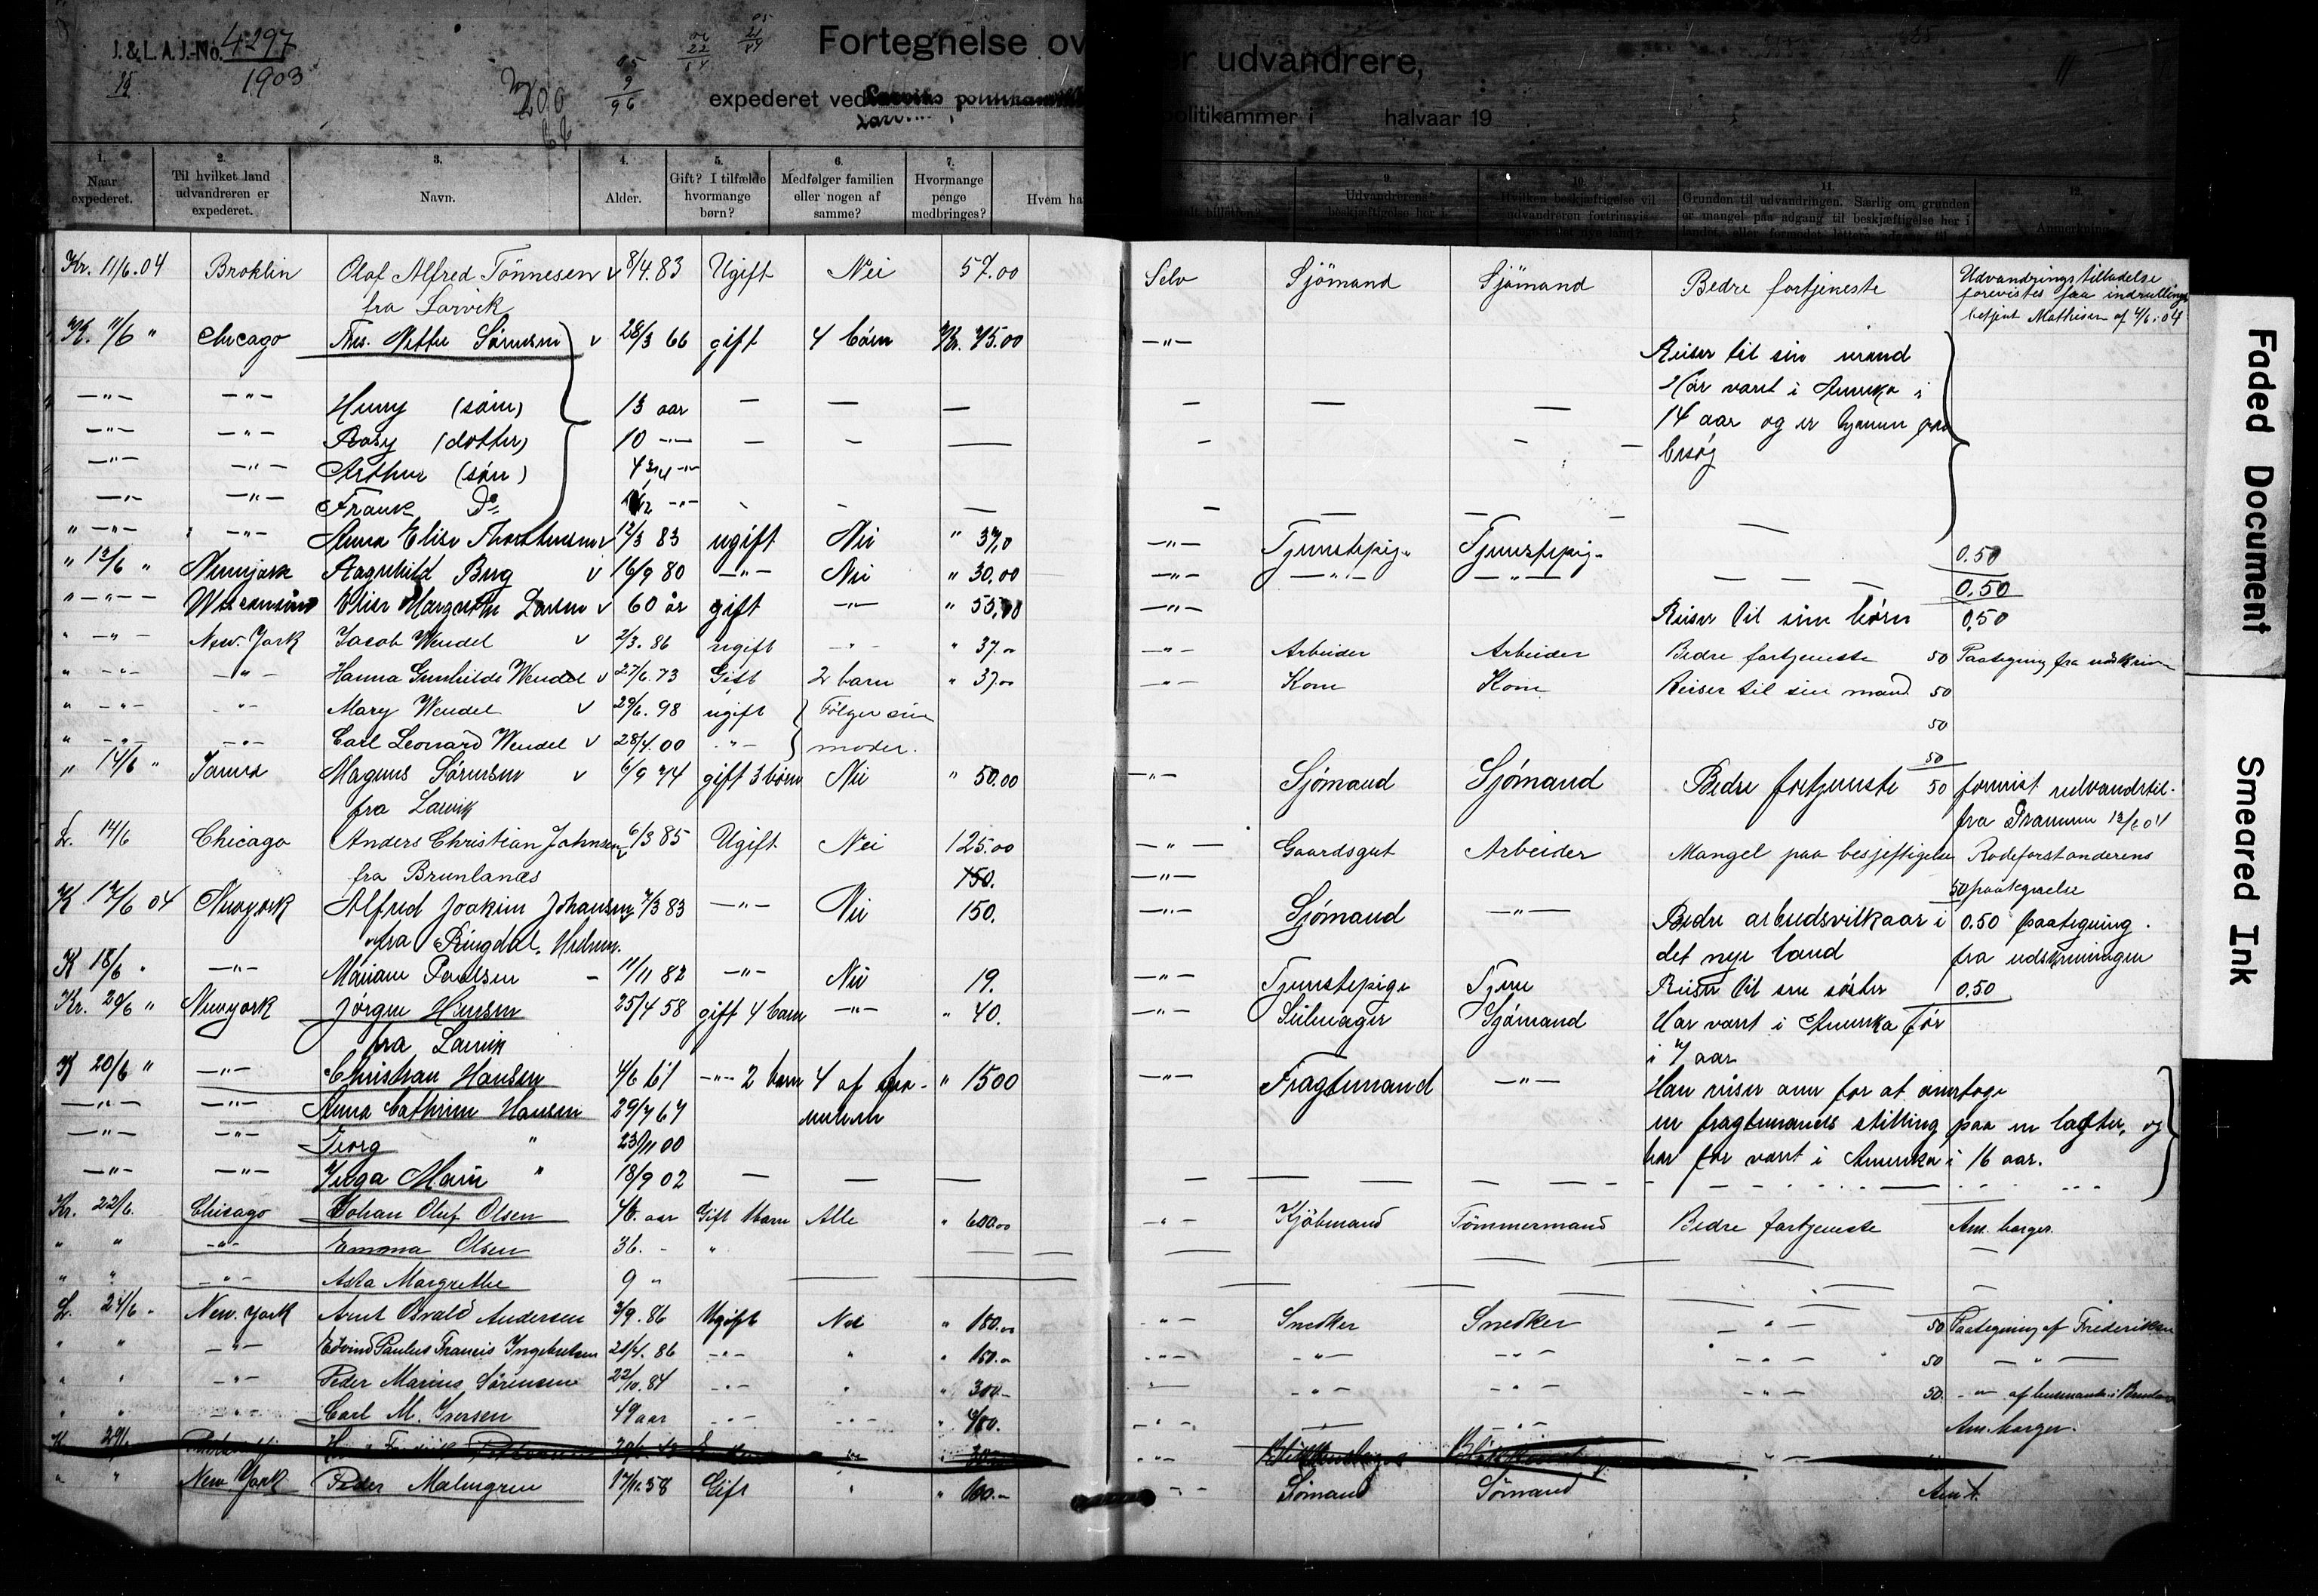 J. & L. A. J.-No. 4297
15 1903
200
05 9 96
22
05 21
Fortegnelse ov er udvandrere,
expederet ved politikammer i halvaar 19
1. Naar expederet.
2. Til hvilket land udvandreren er expederet.
3. Navn.
4. Alder.
5. Gift? I tilfælde hvormange børn?
6. Medfølger familien eller nogen af samme?
7. Hvormange penge medbringes?
Hvem ha
9. Udvandrerens beskjæftigelse her i
10. Hvilken beskjæftigelse vil udvandreren fortrinsvis
11. Grunden til udvandringen. Særlig om grunden er mangel paa adgang til beskjæftigelse her i
12.
Kr. 11/6.04 Broklin Olaf Alfred Tönnesen v 8/4.83 Ugift Nei 57.00 Selv Sjömand Sjömand Bedre fortjeneste Udvandringstilladelse
fra Larvik forevistes fra indrullings
betjent Mathisen af 4/6.04
K. 11/6 " Chicago Fru. Nettie Sørensen v 28/3 66 gift 4 børn Kr. 75.00 —"— Reiser til sin mand
Har vært i Amerika i
—"— —"— Henry (søn) 13 aar — — — — — —
14 aar og er hjemme paa
—"— —"— Rosy (dotter) 10 —"— — — — — — —
besøg
—"— —"— Arthur (søn) 4 3/4 —"—
—"— —"— Frank Do 1/2 —"—
" —"— —"— Anna Elise Thorstensen v 12/3 83 ugift Nei " 37,0 —"— Tjenestepige Tjenestepige — 0.50
" 13/6 " Newyork Ragnhild Berg v 16/9 80 —"— Nei " 30.00 —"— —"— —"— — — — 0.50
" —"— Wisconsin Elise Margrethe Larsen v 60 år gift —"— " 55.00 —"— Reiser til sine børn 0.50
" —"— New-York Jacob Wendel v 2/3.86 ugift —"— " 37.00 —"— Arbeider Arbeider Bedre fortjeneste 50 Paategning fra udskrivn
" —"— —"— Hanna Gunhilde Wendel v 27/6.73 Gift 2 barn " 37.00 —"— Kone Kone Reiser til sin mand 50
" —"— —"— Mary Wendel v 29/6.98 ugift Følger sin 50
" —"— —"— Carl Leonard Wendel v 28/4.00 —"— moder. 50
" 14/6 " Magnus Sørensen v 6/9 74 gift 3 børn Nei " 50.00 —"— Sjömand Sjömand Bedre fortjeneste 50 forevist udvandrtil-
fra Larvik fra Drammen 13/6 04
L. 14/6 Chicago Anders Christian Johnsen v 6/3 85 Ugift Nei 125.00 —"— Gaardsgut Arbeider Mangel paa besjeftigelse Rodeforstanderens
fra Brunlanæs 150. —"— 50 paategnelse
K 17/6 04 Newyork Alfred Joakim Johansen 7/3 83 —"— Nei 150. —"— Sjömand —"— Bedre arbeidsvilkaar i 0.50 paategning.
fra Ringdal. Hedrum. det nye land fra udskrivningen
K 18/6 " —"— Mariane Paulsen - 11/11 82 —"— Nei 19. —"— Tjenestepige Tjene Reiser til sin søster 0.50
Kr. 20/6 " Newyork Jørgen Hansen 25/4 58 gift 4 barn —"— " 40. —"— Seilmager Sjömand Har vært i Amerika før
fra Larvik i 7 aar
K 20/6 " —"— Christian Hansen 4/6 61 —"— 2 barn 4 af fa- " 1500 —"— Fragtemand —"— Han reiser over for at
—"— —"— Anna Cathrine Hansen 29/7 67 milien en fragtemands stilling paa en lægter, og
—"— —"— Georg " 23/11 00 har før vært i Amerika i 16 aar.
—"— —"— Inga Marie " 18/9 02 — — —
Kr. 22/6. Chicago Johan Oluf Olsen 46. aar Gift 1 barn Alle " 600.00 —"— Kjøbmand Tömmermand Bedre fortjeneste Am. borger.
" " —"— Emma Olsen 36. - "
" " —"— Asta Margrethe 9 "
L. 24/6 - New. York Arnt Osvald Andersen 3/9.86 Ugift Nei " 180.00 —"— Snedker Snedker —"— 50 Paategning af Frederiksen
" " —"— Edvind Paulus Francis Ingebretsen 21/4.86 —"— " " 150.- —"— —"— —"— —"— 50 —"—
" " —"— Peder Marius Sörensen 22/10.84 —"— " " 300- —"— —"— —"— 50. —"— af
" " —"— Carl M. Iversen 49 aar —"— —"— —"— —"— Am. borger.
K. 29/6
" " New York Peder Malmgren 17/11.58 Gift " " 100.- —"— Sjömand Sømand Am.
Faded Document
Smeared Ink